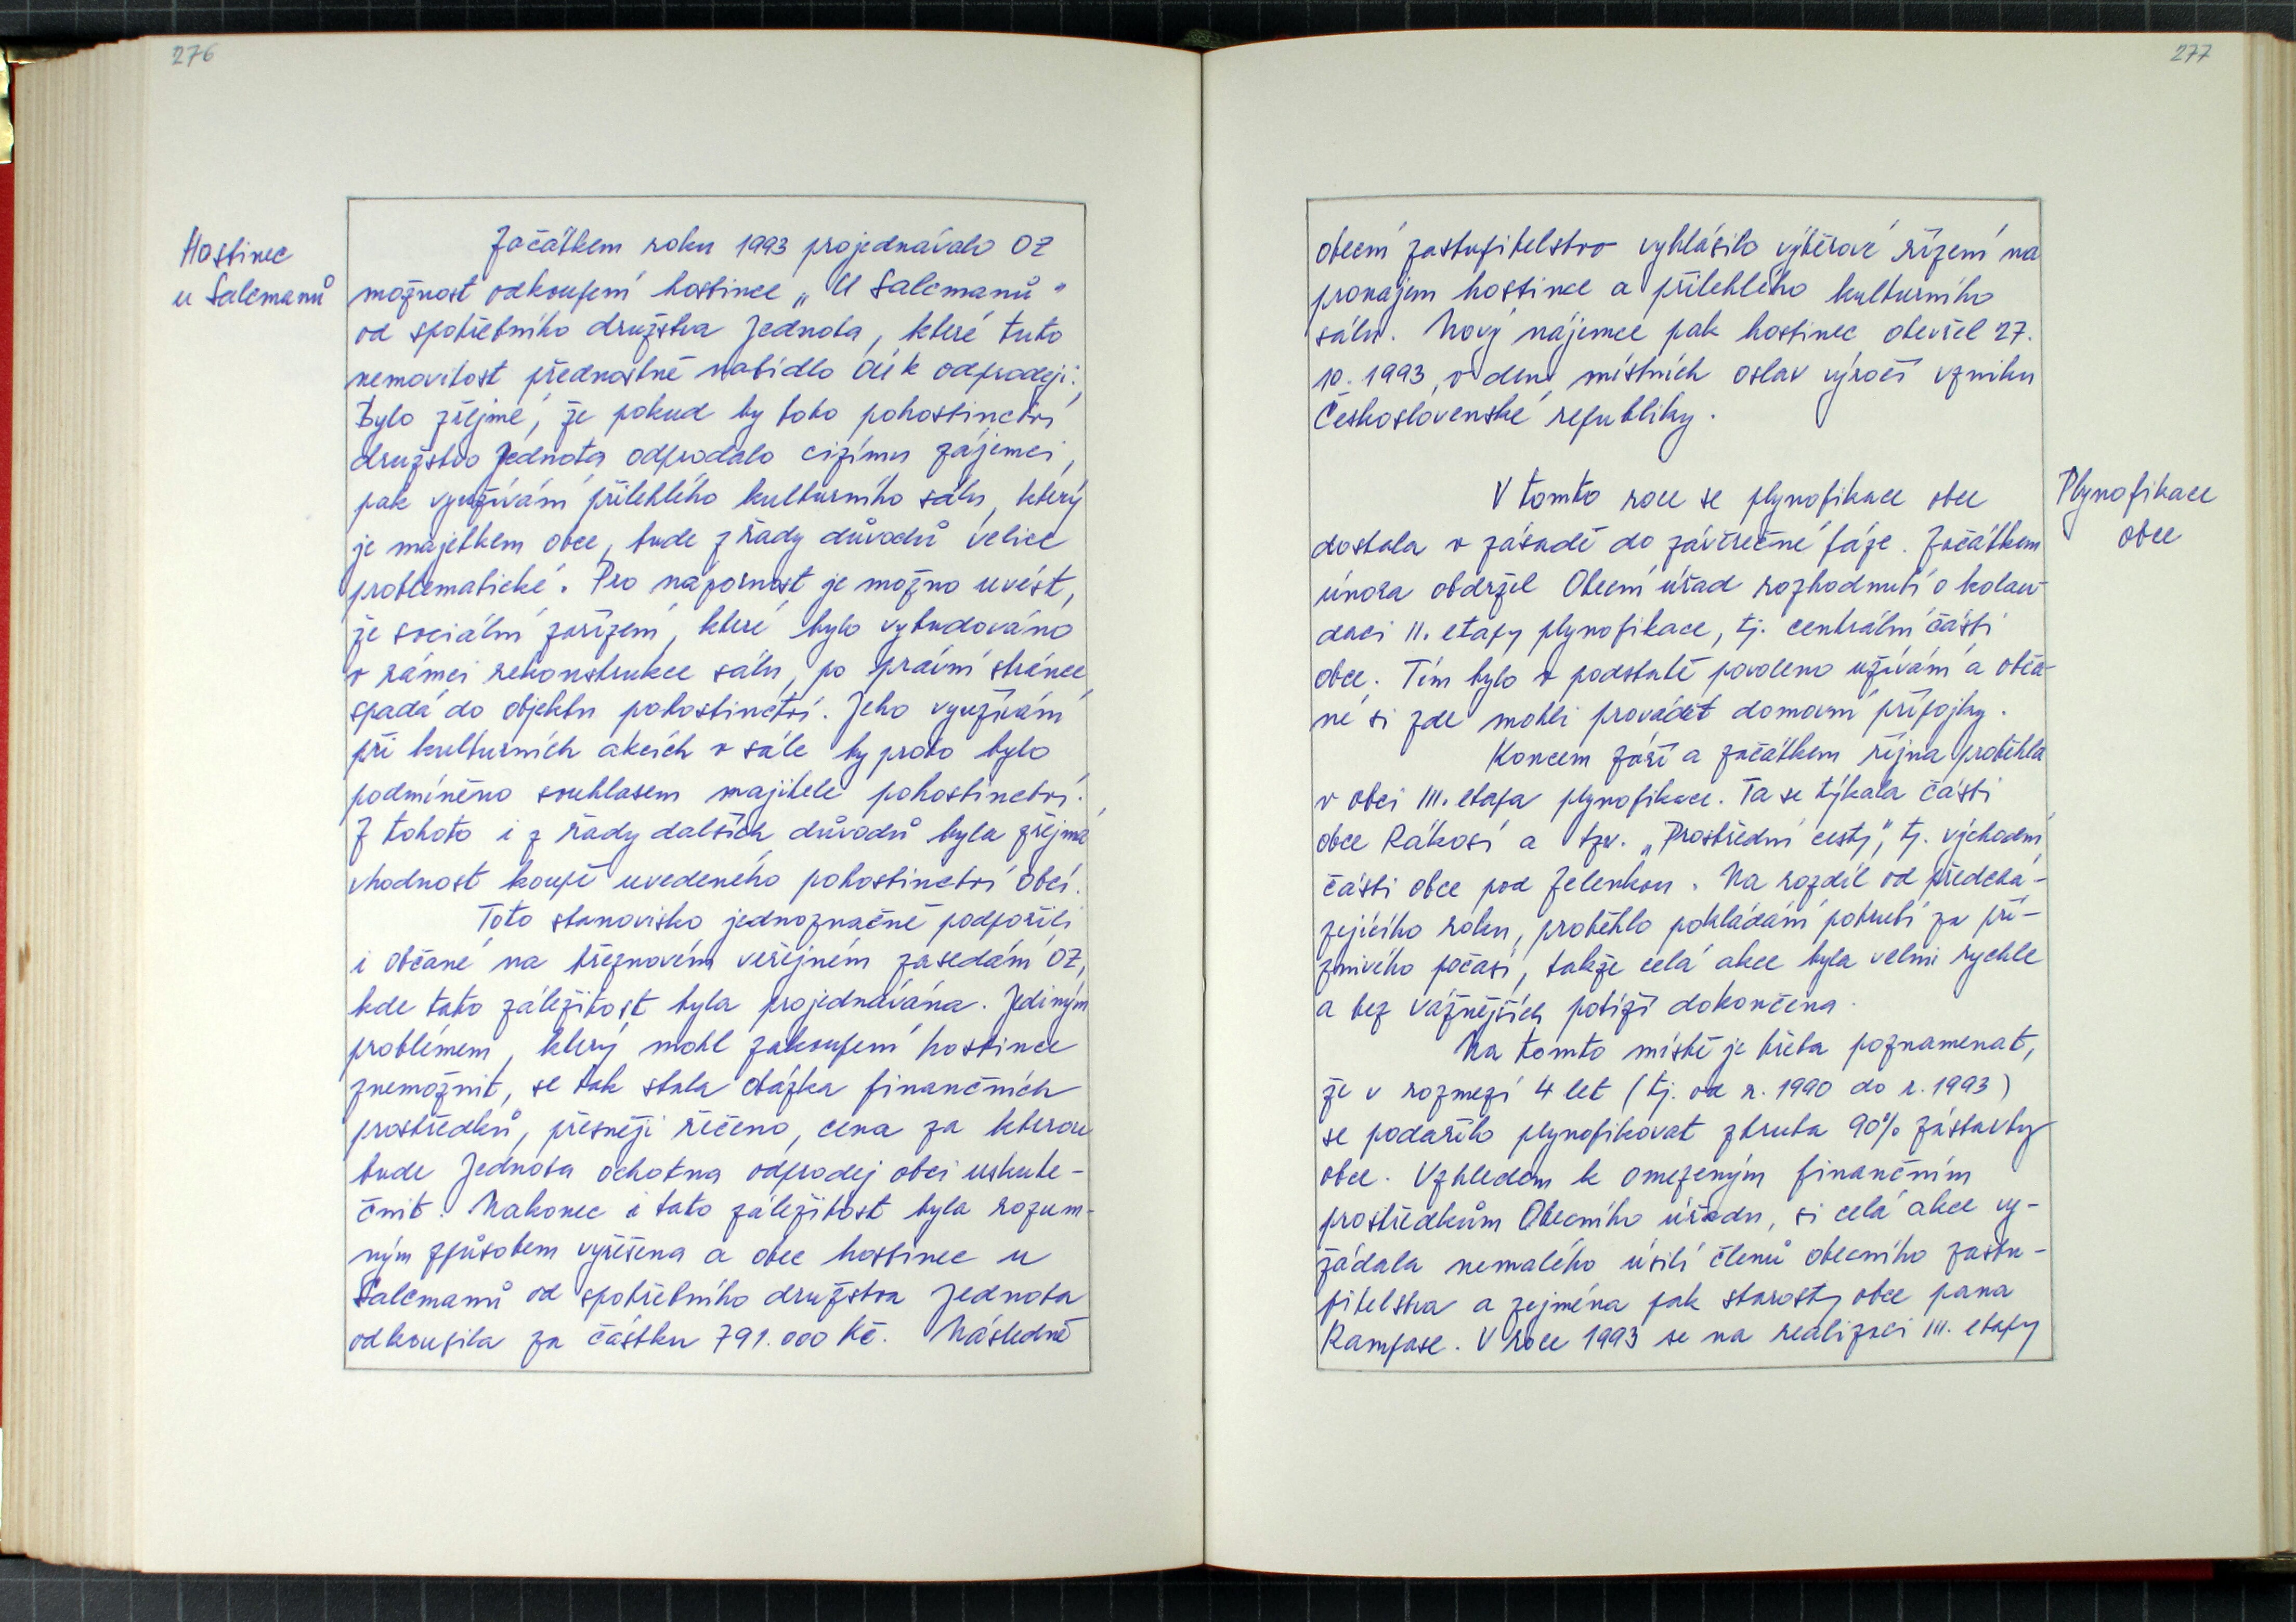 276
Hostinec
u Salcmanů
Začátkem roku 1993 projednávalo OZ
možnost odkoupení hostince „U Salcmanů"
od spotřebního družstva Jednota, které tuto
nemovitost přednostně nabídlo OÚ k odprodeji.
Bylo zřejmé, že pokud by toto pohostinství
družstvo Jednota odprodalo cizímu zájemci,
pak využívání přilehlého kulturního sálu, který
je majetkem obce, bude z řady důvodů velice
problematické. Pro názornost je možno uvést,
že sociální zařízení, které bylo vybudováno
v rámci rekonstrukce sálu, po právní stránce
spadá do objektu pohostinctví. Jeho využívání
při kulturních akcích v sále by proto bylo
podmíněno souhlasem majitele pohostinctví.
Z tohoto i z řady dalších důvodů byla zřejmá
vhodnost koupě uvedeného pohostinctví obcí.
Toto stanovisko jednoznačně podpořili
i občané na březnovém veřejném zasedání OZ,
kde tato záležitost byla projednávána. Jediným
problémem, který mohl zakoupení hostince
znemožnit, se tak stala otázka finančních
prostředků, přesněji řečeno, cena za kterou
bude Jednota ochotna odprodej obci uskute-
čnit. Nakonec i tato záležitost byla rozum-
ným způsobem vyřešena a obec hostinec u
Salcmanů od spotřebního družstva Jednota
odkoupila za částku 791.000 Kč. Následně
277
obecní zastupitelstvo vyhlásilo výběrové řízení na
pronájem hostince a přilehlého kulturního
sálu. Nový nájemce pak hostinec otevřel 27.
10. 1993, v den místních oslav výročí vzniku
Československé republiky.
Plynofikace
obce
V tomto roce se plynofikace obce
dostala v zásadě do závěrečné fáze. Začátkem
února obdržel Obecní úřad rozhodnutí o kolau-
daci II. etapy plynofikace, tj. centrální části
obce. Tím bylo v podstatě povoleno užívání a obča-
né si zde mohli provádět domovní přípojky.
Koncem září a začátkem října proběhla
v obci III. etapa plynofikace. Ta se týkala části
obce Rákosí a tzv. „Prostřední cesty", tj. východní
části obce pod Zelenkou. Na rozdíl od předchá-
zejícího roku, proběhlo pokládání potrubí za pří-
znivého počasí, takže celá akce byla velmi rychle
a bez vážnějších potíží dokončena.
Na tomto místě je třeba poznamenat,
že v rozmezí 4 let (tj. od r. 1990 do r. 1993)
se podařilo plynofikovat zhruba 90% zástavby
obce. Vzhledem k omezeným finančním
prostředkům Obecního úřadu, si celá akce vy-
žádala nemalého úsilí členů obecního zastu-
pitelstva a zejména pak starosty obce pana
Rampase. V roce 1993 se na realizaci III. etapy